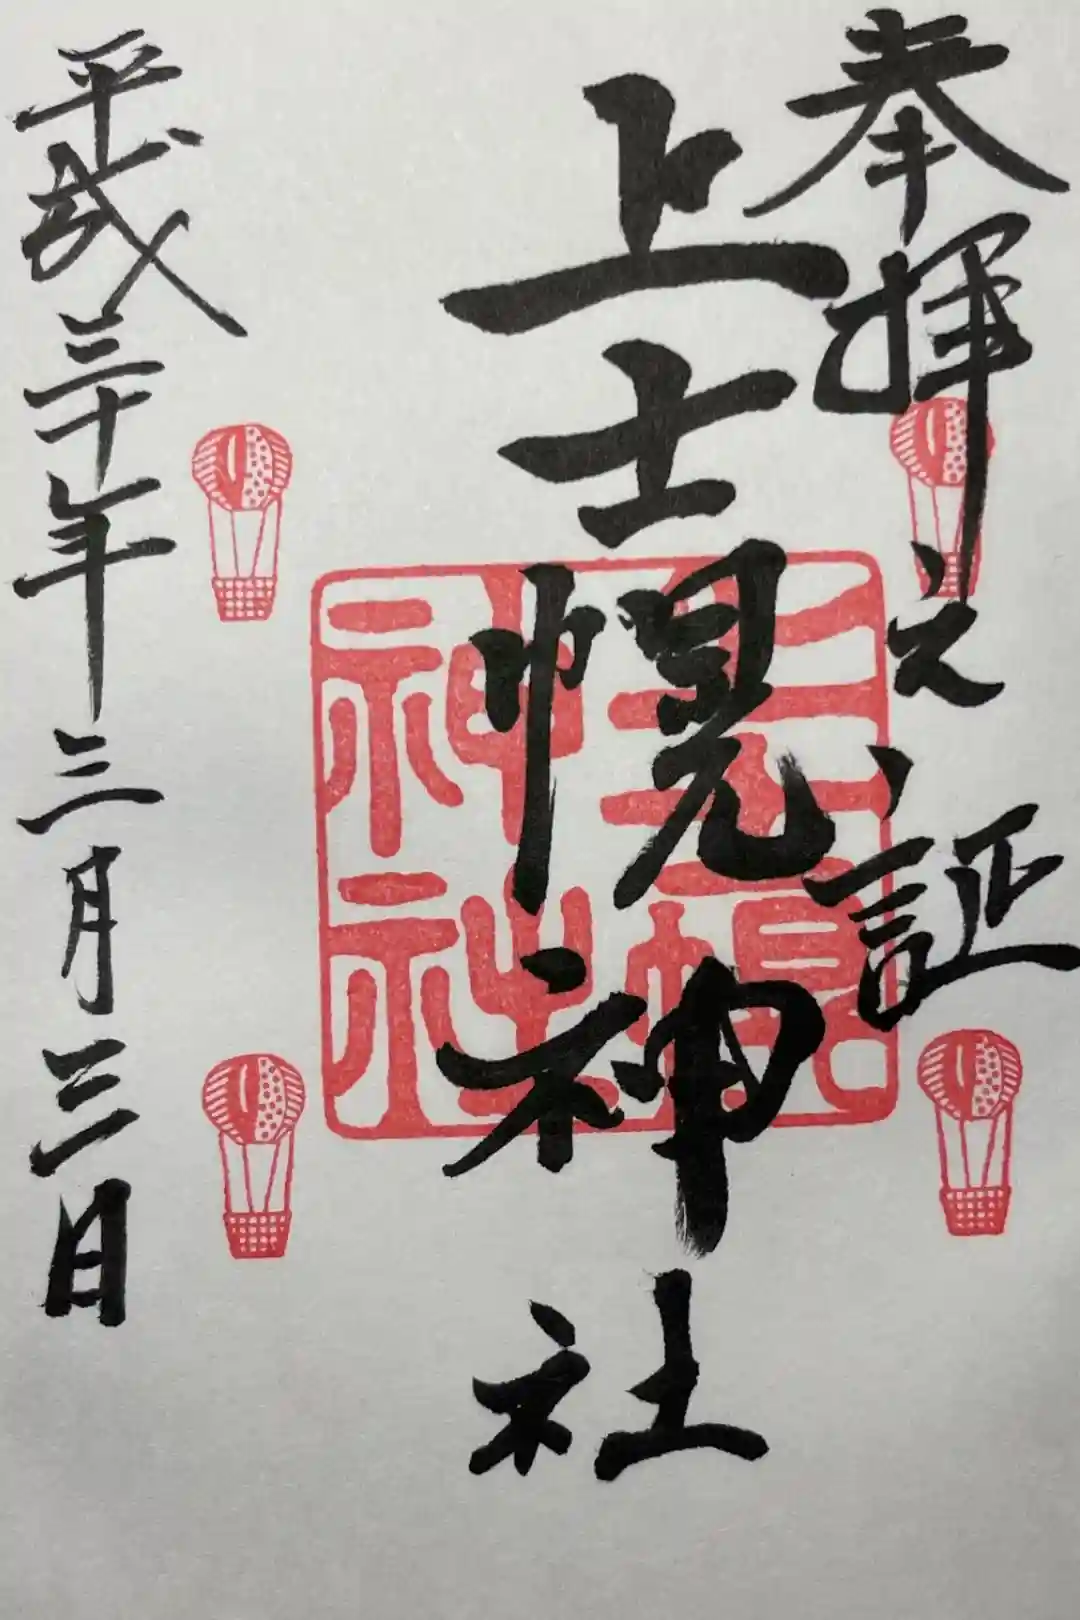 奉拝之証
上士幌神社
上士幌神社
平成三十年三月三日